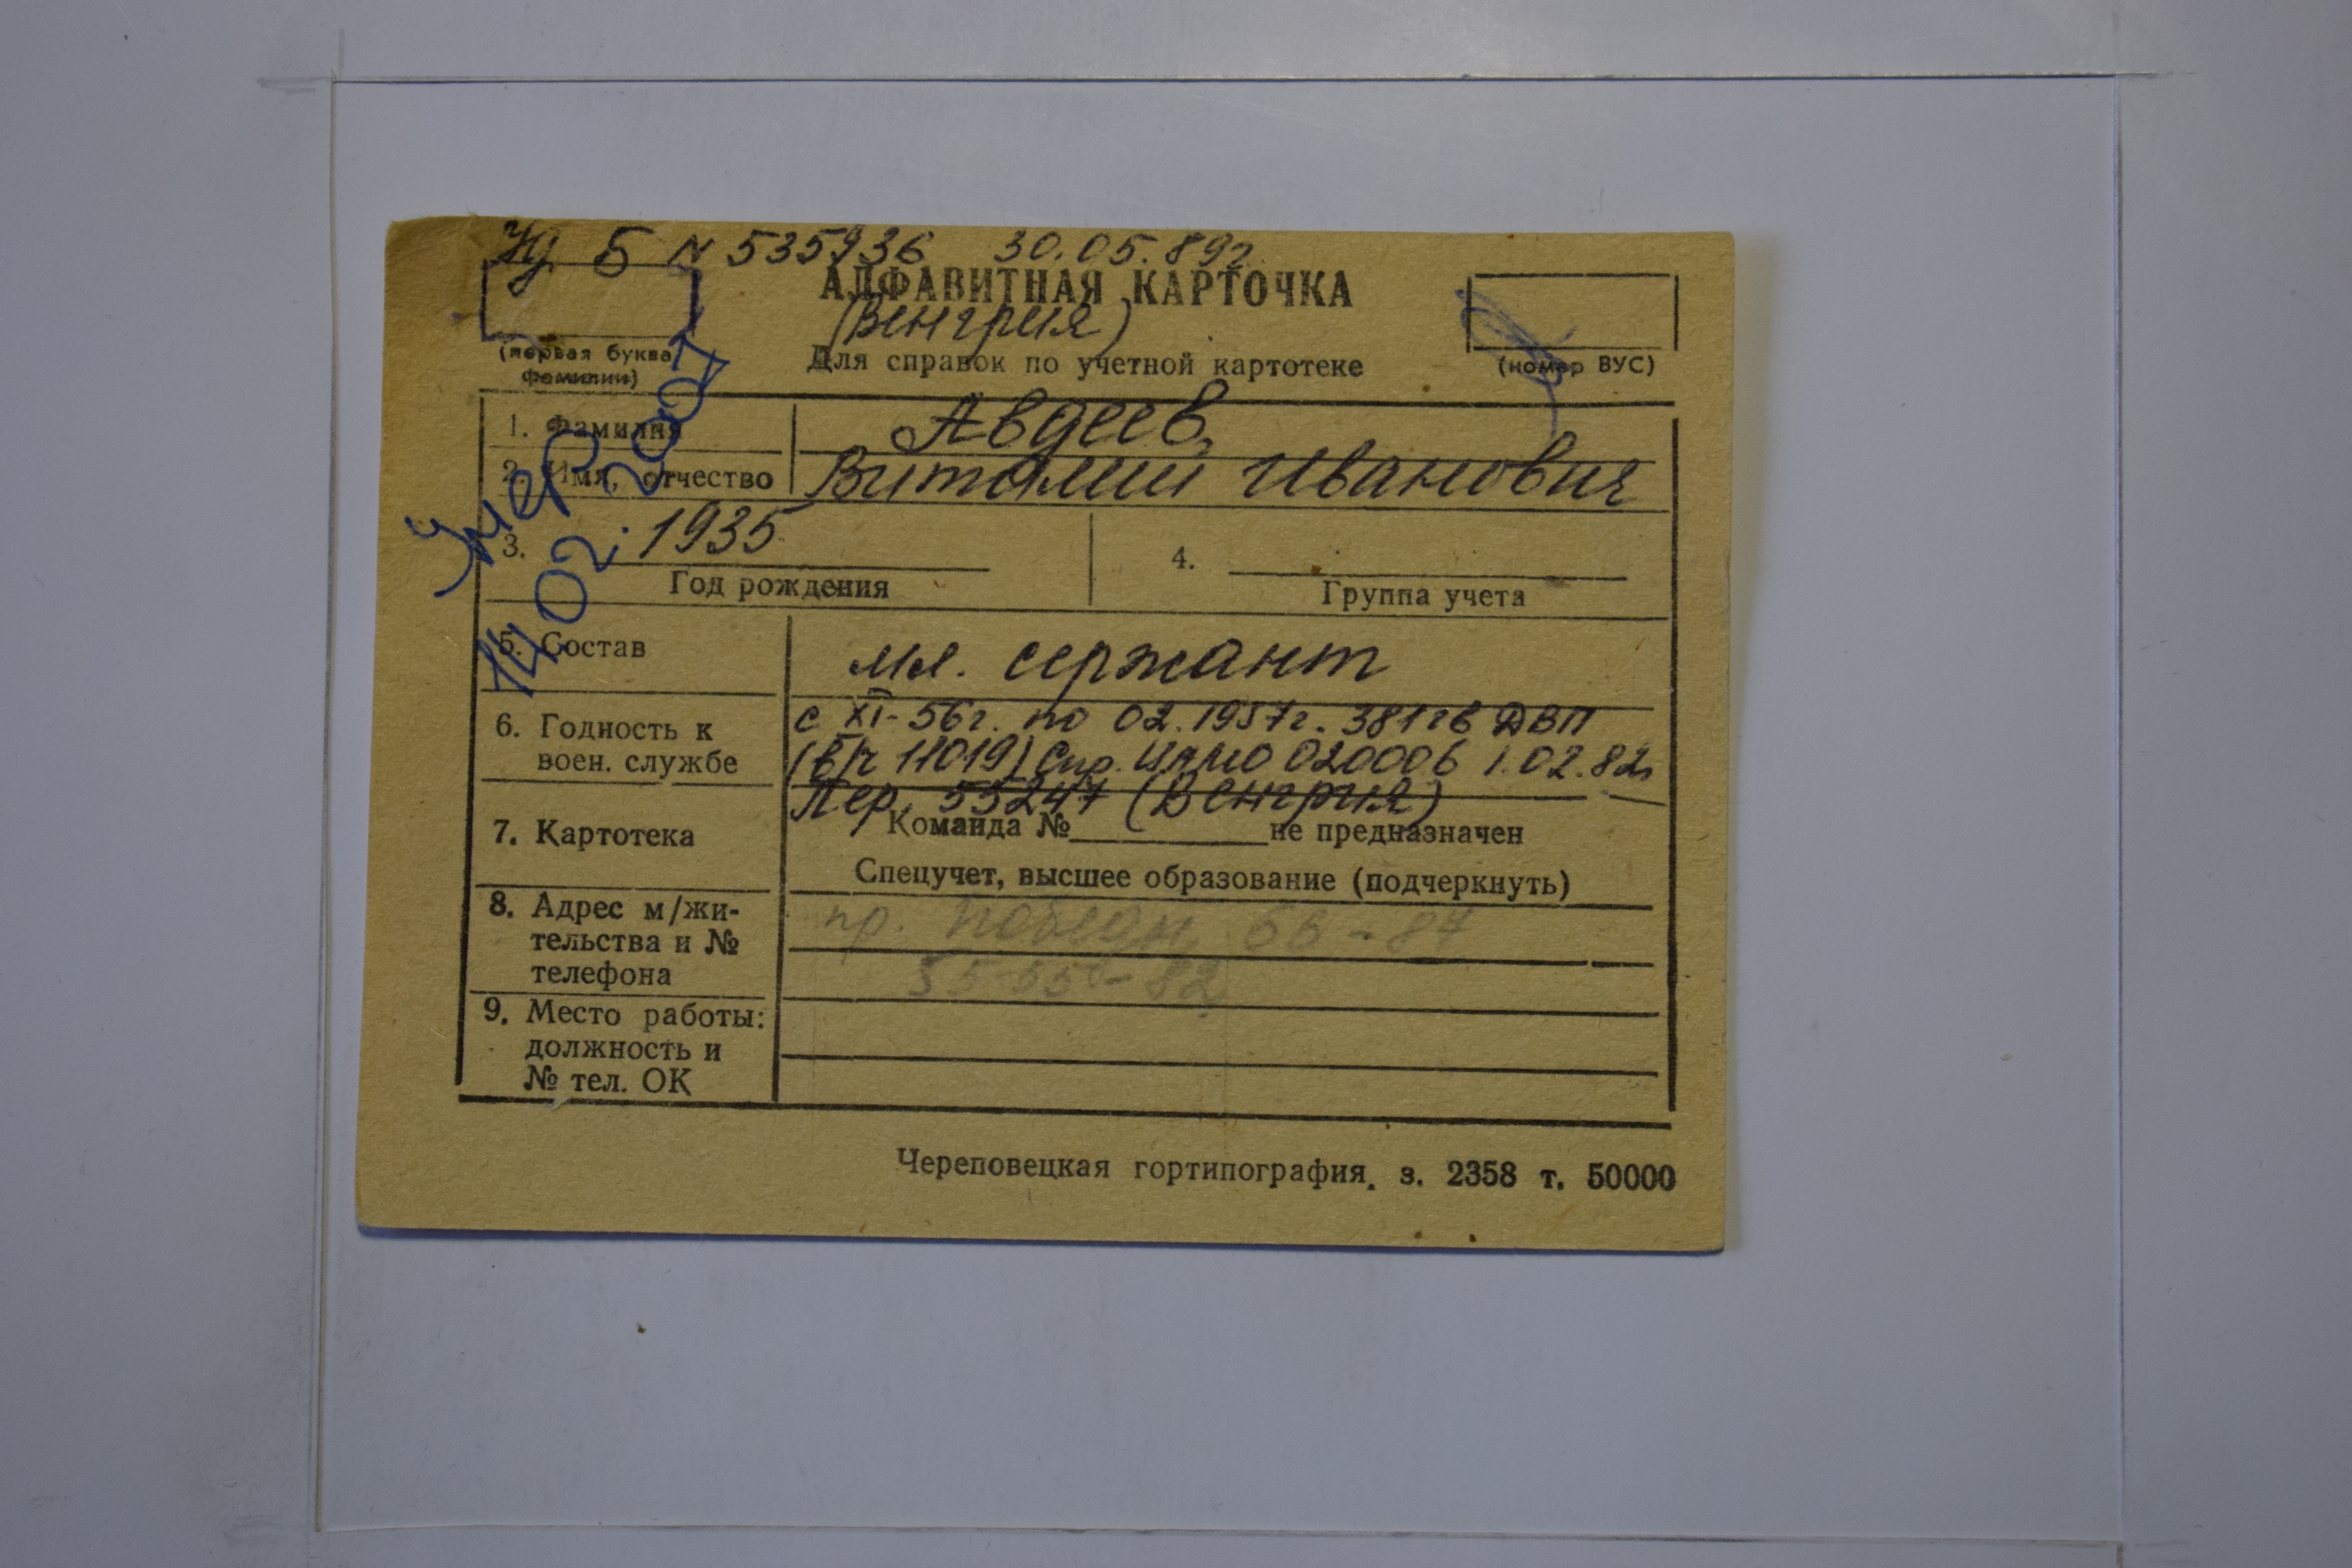 Уд Б № 535936 30.05.89г
АЛФАВИТНАЯ КАРТОЧКА
(Венгрия)
(первая буква фамилии)
Для справок по учетной картотеке
(номер ВУС)
Умер
14.02.2001
1. Фамилия Авдеев
2. Имя, отчество Виталий Иванович
3. 1935
Год рождения
4.
Группа учета
5. Состав мл. сержант
6. Годность к воен. службе
с XI-56г. по 02.1957г. 381 гв ДВП
(в/ч 11019) Спр. ЦАМО 020006 1.02.82г
Пер. 55247 (Венгрия)
7. Картотека
Команда № не предназначен
Спецучет, высшее образование (подчеркнуть)
8. Адрес м/жи-
тельства и №
телефона
пр. Победы 66-87
9. Место работы:
должность и
№ тел. ОК
Череповецкая гортипография. з. 2358 т. 50000